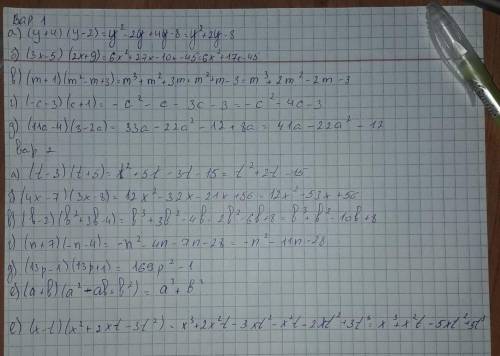 Вар. 1
а) (y+4)(y-2)=y²-2y+4y-8=y²+2y-8
б) (3x-5)(2x+9)=6x²+27x-10x-45=6x²+17x-45
в) (m+1)(m²-m+3)=m³+m²+3m+m²+m-3=m³+2m²-2m-3
г) (-c-3)(c+1)=-c²-c-3c-3=-c²-4c-3
д) (11a-4)(3-2a)=33a-22a²-12+8a=41a-22a²-12
Вар 2
а) (t-3)(t+5)=t²+5t-3t-15=t²+2t-15
б) (4x-7)(3x-8)=12x²-32x-21x+56=12x²-53x+56
в) (b-2)(b²+3b-4)=b³+3b²-4b-2b²-6b+8=b³+b²-10b+8
г) (n+7)(-n-4)=-n²-4n-7n-28=-n²-11n-28
д) (13p-1)(13p+1)=169p²-1
е) (a+b)(a²-ab+b²)=a³+b³
е) (x-t)(x²+2xt-3t²)=x³+2x²t-3xt²-x²t-2xt²+3t³=x³+x²t-5xt²+3t³